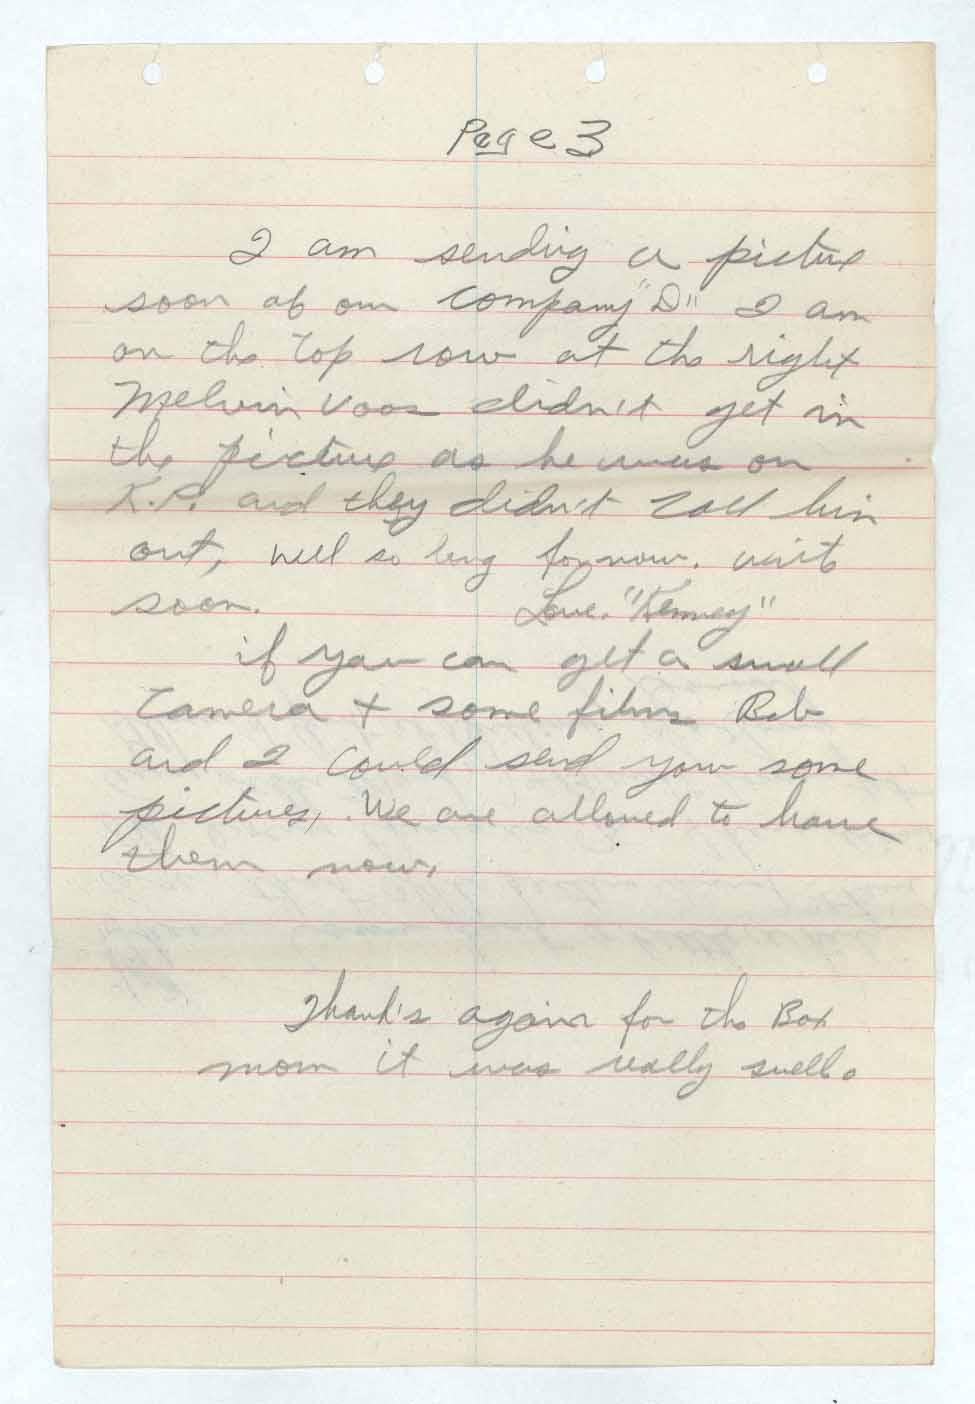 Page 3
I am sending a picture
soon of our Company "D" I am
on the top row at the right
Melvin Voos didn't get in
the picture as he was on
K.P. and they didn't call him
out, well so long for now. writ
soon. Love. "Kenney"
if you can get a small
camera + some films Bob
and I could send you some
pictures, We are allowed to have
them now.
Thank's again for the Box
mom it was really swell.